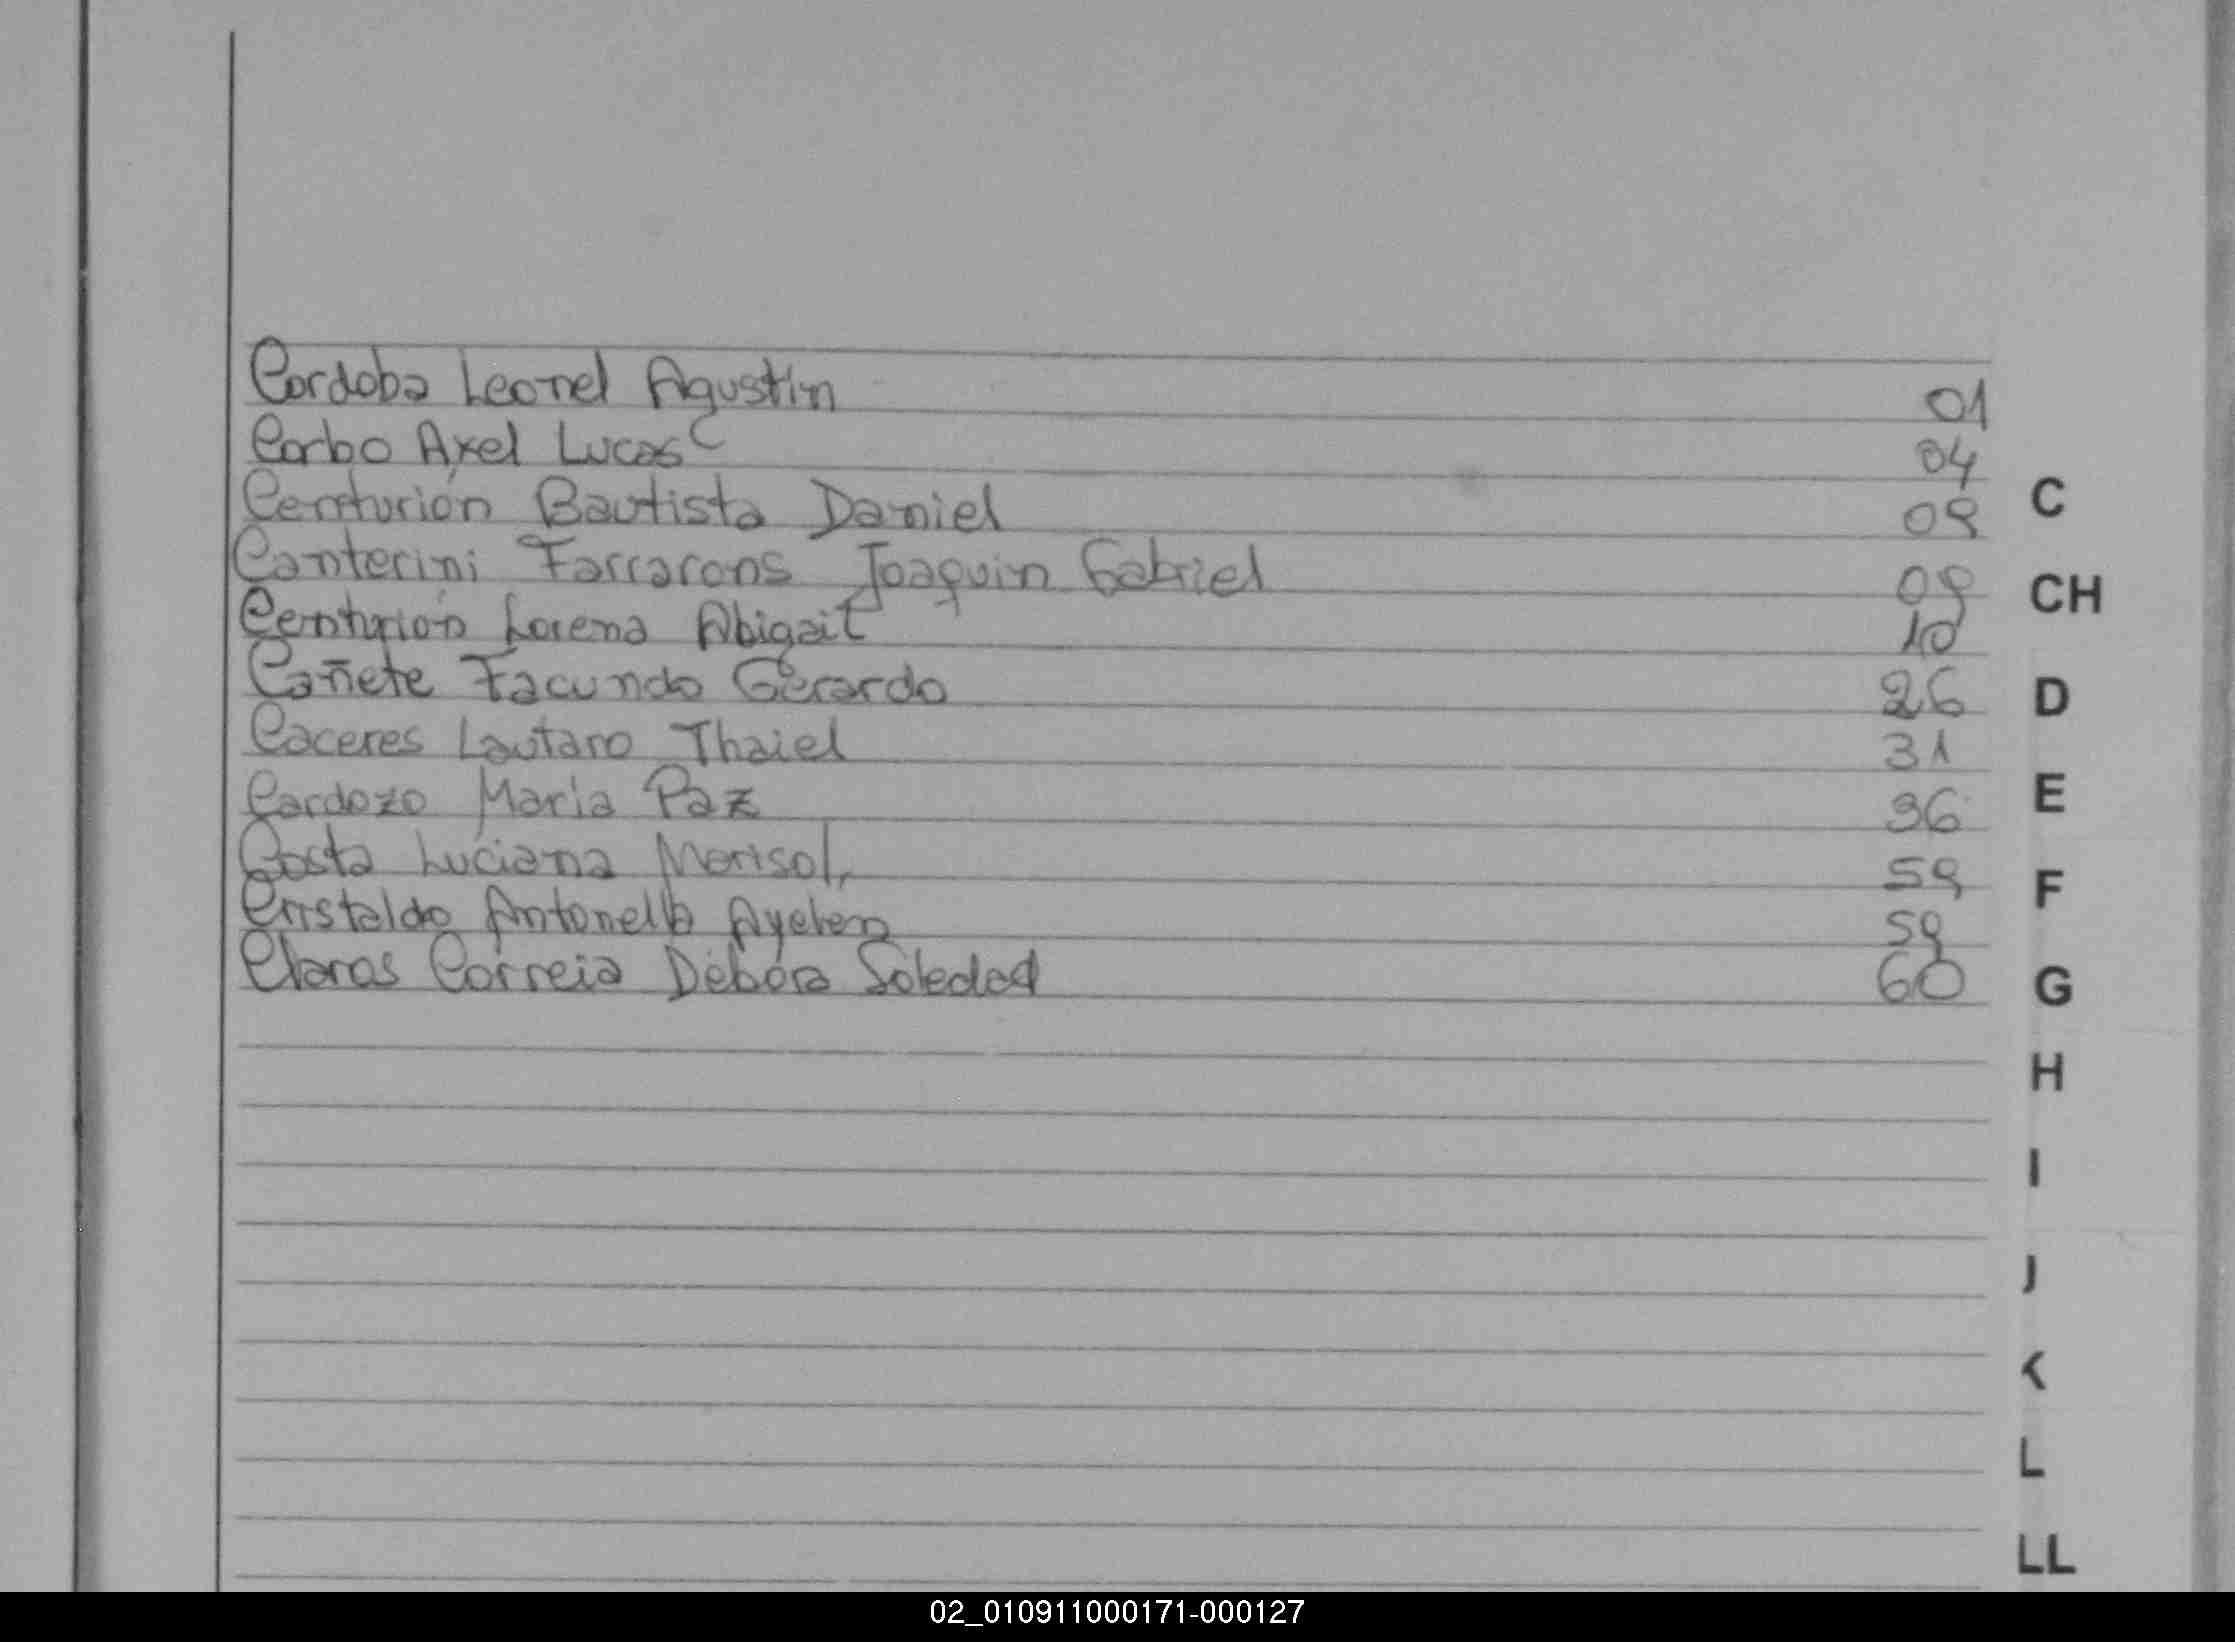 Cordoba Leonel Agustin 01
Corbo Axel Lucas 04
Centurión Bautista Daniel 09
Canterini Farrarons Joaquin Gabriel 09
Centurión Lorena Abigail 10
Cañete Facundo Gerardo 26
Caceres Lautaro Thaiel 31
Cardozo Maria Paz 36
Costa Luciana Marisol, 59
Cristaldo Antonella Ayelen 59
Claros Correia Débora Soledad 60
C
CH
D
E
F
G
H
I
J
K
L
LL
02_010911000171-000127